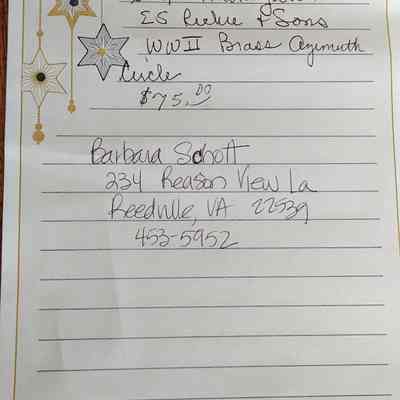 ES Ritchie & Sons
WWII Brass Azimuth
Circle
$75.00
Barbara Schott
234 Reason View La
Reedville, VA 22539
453-5952